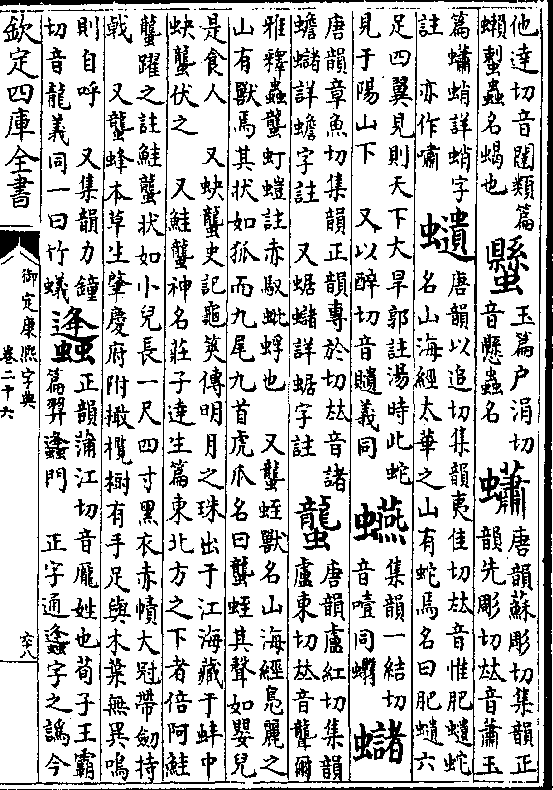 他達切音闥類篇
蟿蟲名蝎也
玉篇戶涓切
音懸蟲名
蠨
唐韻蘇彫切集韻正
韻先彫切𠀤音蕭玉
篇蠨蛸詳蛸字
註 亦作嘯
𧔥
唐韻以追切集韻夷佳切𠀤音惟肥𧔥蛇
名山海經太華之山有蛇焉名曰肥𧔥六
足四翼見則天下大旱郭註湯時此蛇
見于陽山下 又以醉切音義同
集韻一結切
音噎同蠮
蠩
唐韻章魚切集韻正韻專於切𠀤音諸
蟾蠩詳蟾字註 又蜛蠩詳蜛字註
蠪
唐韻盧紅切集韻
盧東切𠀤音聾爾
雅釋蟲蠪朾螘註赤駁蚍蜉也 又蠪蛭獸名山海經鳧麗之
山有獸焉其狀如狐而九尾九首虎爪名曰蠪蛭其聲如嬰兒
是食人 又蚗蠪史記龜筴傳明月之珠出于江海藏于蚌中
蚗蠪伏之 又鮭蠪神名莊子達生篇東北方之下者倍阿鮭
蠪躍之註鮭蠪狀如小兒長一尺四寸黑衣赤幘大冠帶劒持
戟 又蠪蜂本草生肇慶府附橄欖樹有手足與木葉無異鳴
則自呼 又集韻力鐘
切音龍義同一曰竹蟻
正韻蒲江切音龐姓也荀子王霸
篇羿門 正字通字之譌今
欽定四庫全書
御定康熙字典
卷二十六
六八